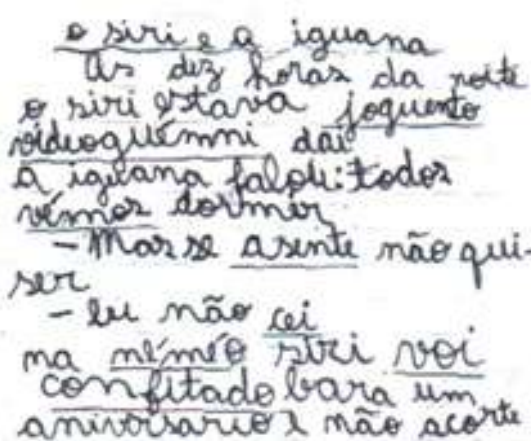 o siri e a iguana
As dez horas da noite
o siri estava joguento
vídeoguémni daí
a iguana falou: todos
vémos dormir
- Mas se a sente não qui-
ser
- Eu não cei
na németo siri voi
confitado bara um
aniversario e não acorte